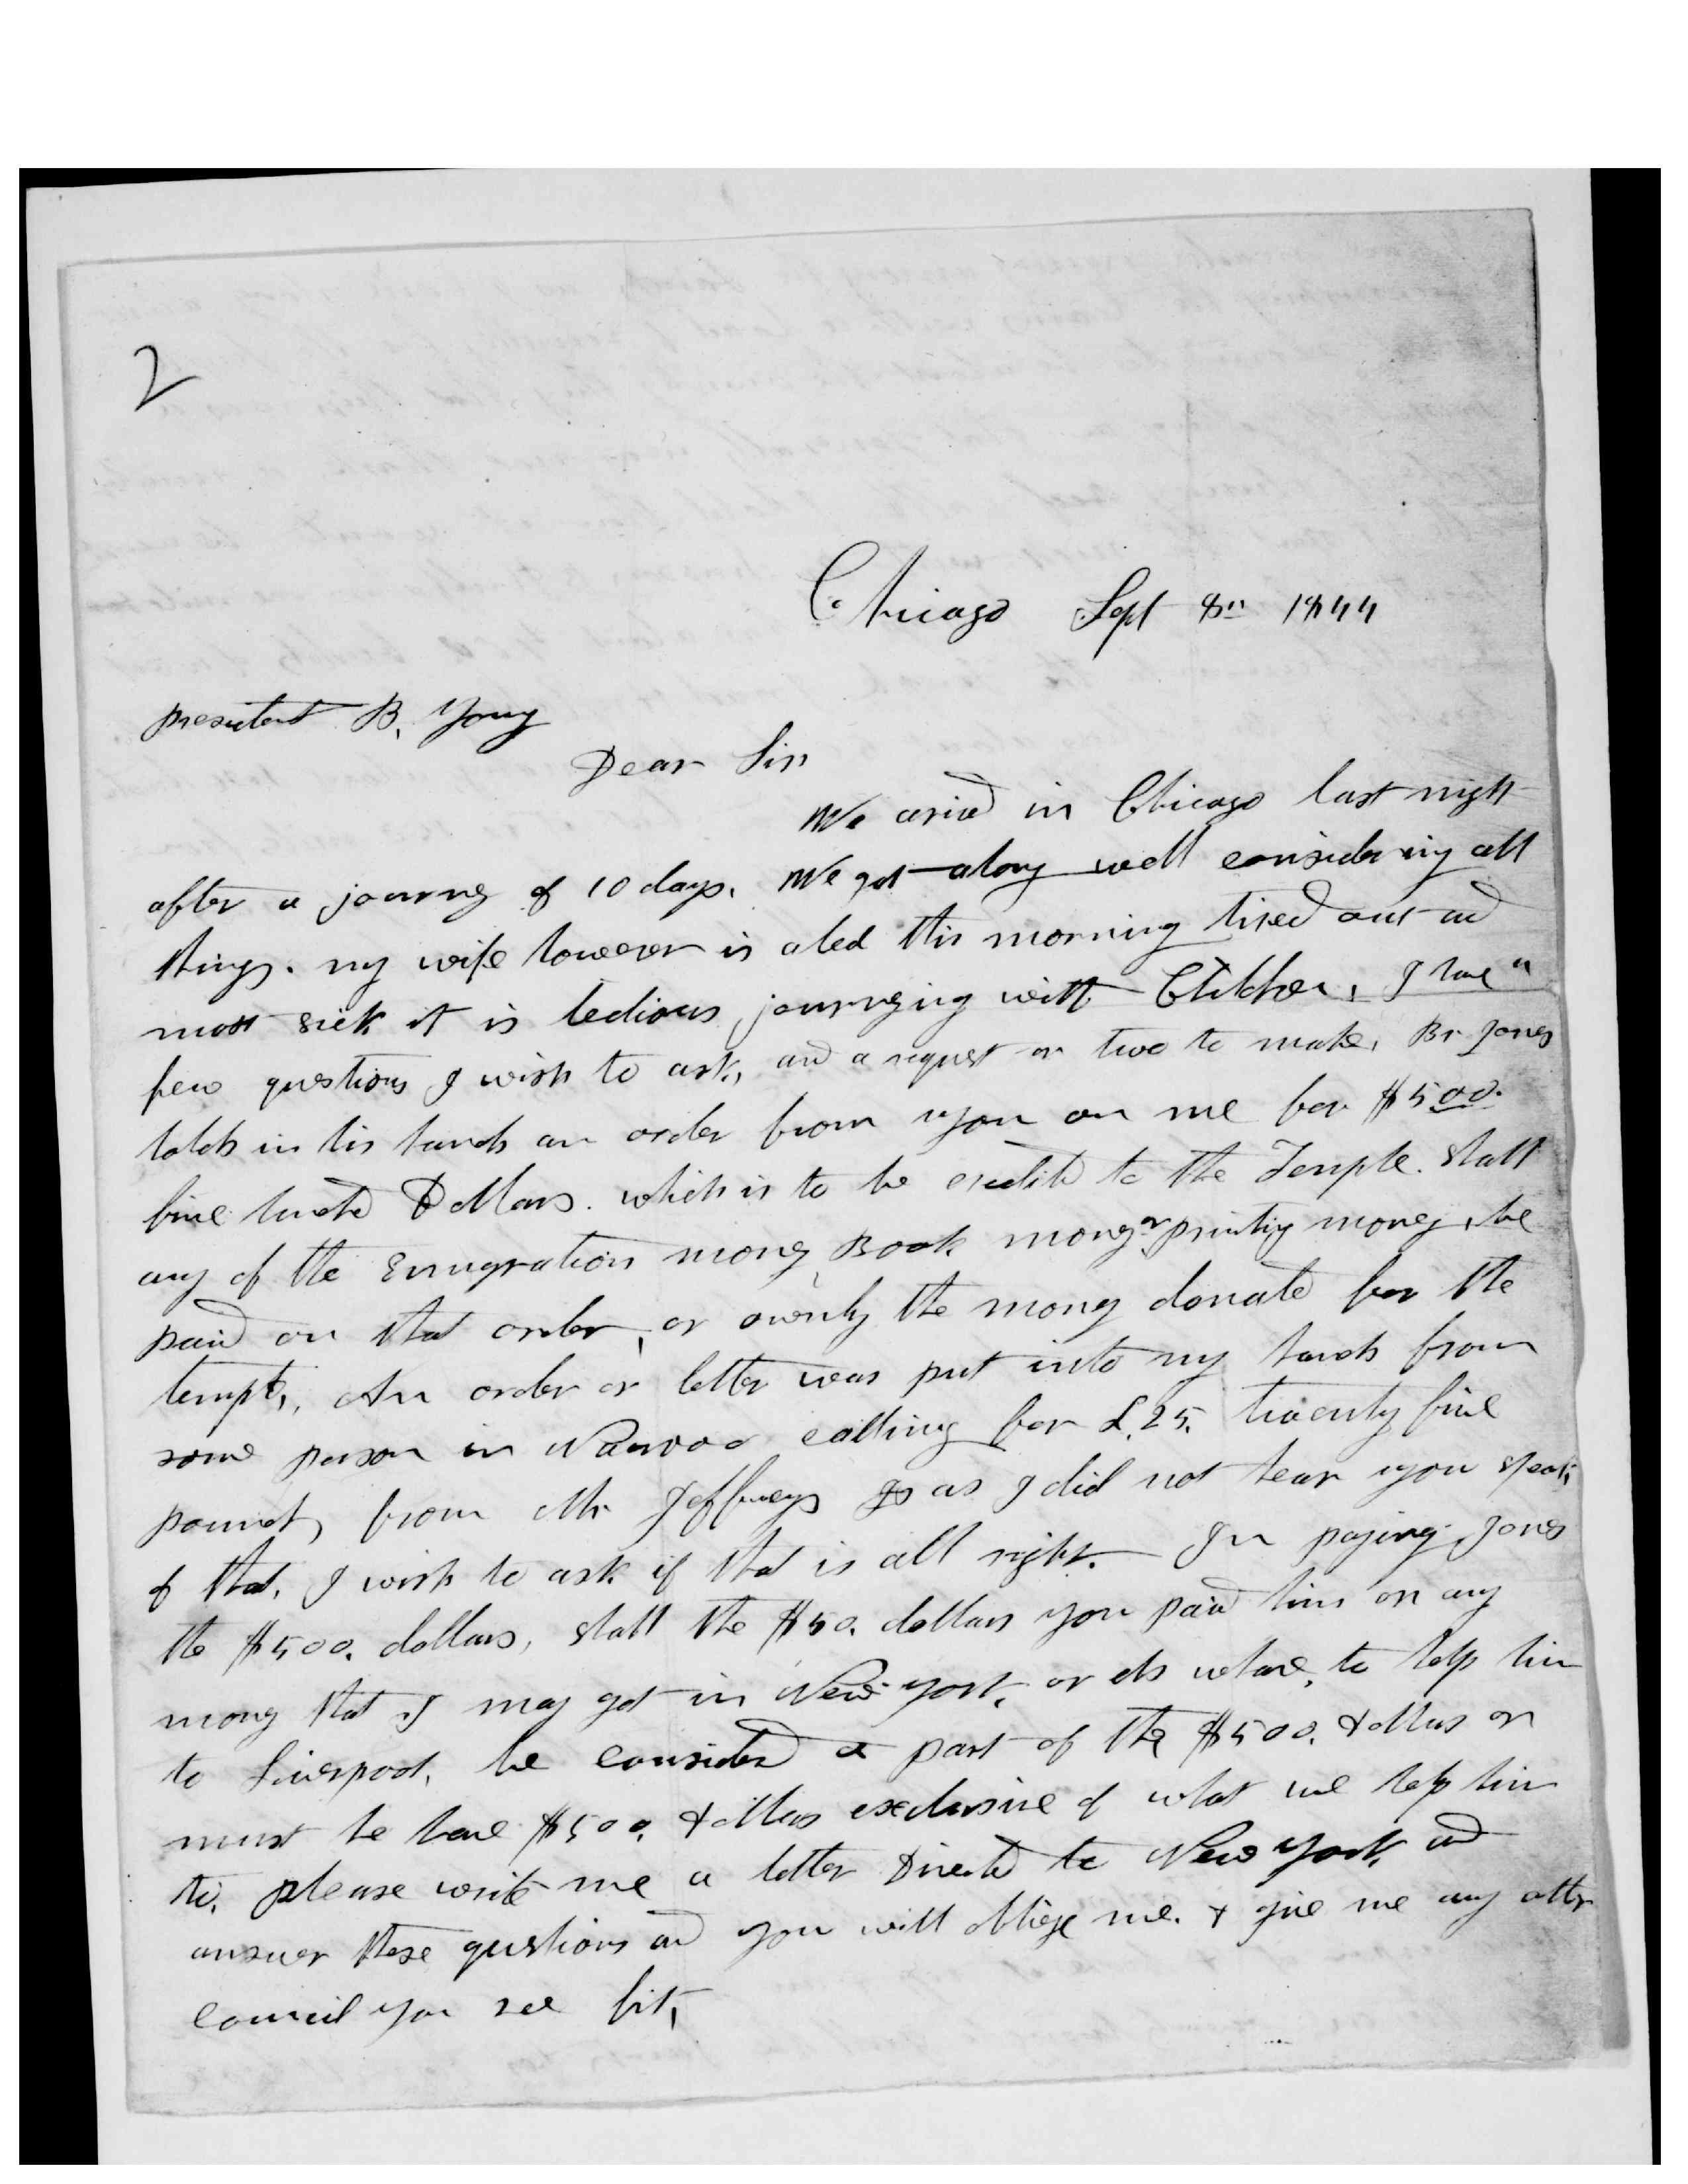 2
Chicago Sept 8th 1844
president B. Young
Dear Sir
We arived in Chicago last night
after a journey of 10 days. We got along well considering all
things. my wife however is abed this morning tired out and
most sick it is tedious journeying with Children, I have a
few questions I wish to ask, and a request or two to make, Br Jones
holds in his hands an order from you on me for $500.
five hundred Dollars. which is to be credited to the Temple. shall
any of the Emugration money Book money or printing money, be
paid on that order, or ownly the money donated for the
temple, An order or letter was put into my hands from
some person in Nauvoo calling for £.25. twenty five
pounds, from Mr Jeffreys as I did not hear you speak
of that, I wish to ask if that is all right. In paying Jones
the $500. dollars, shall the $50. dollars you paid him or any
money that I may get in New York, or els where, to help him
to Liverpool, be considerd a part of the $500. dollars or
must he have $500. dollars exclusive of what we help him
to, please write me a letter Directed to New York, and
answer these qustions and you will obliege me. & give me any other
council you see fit,